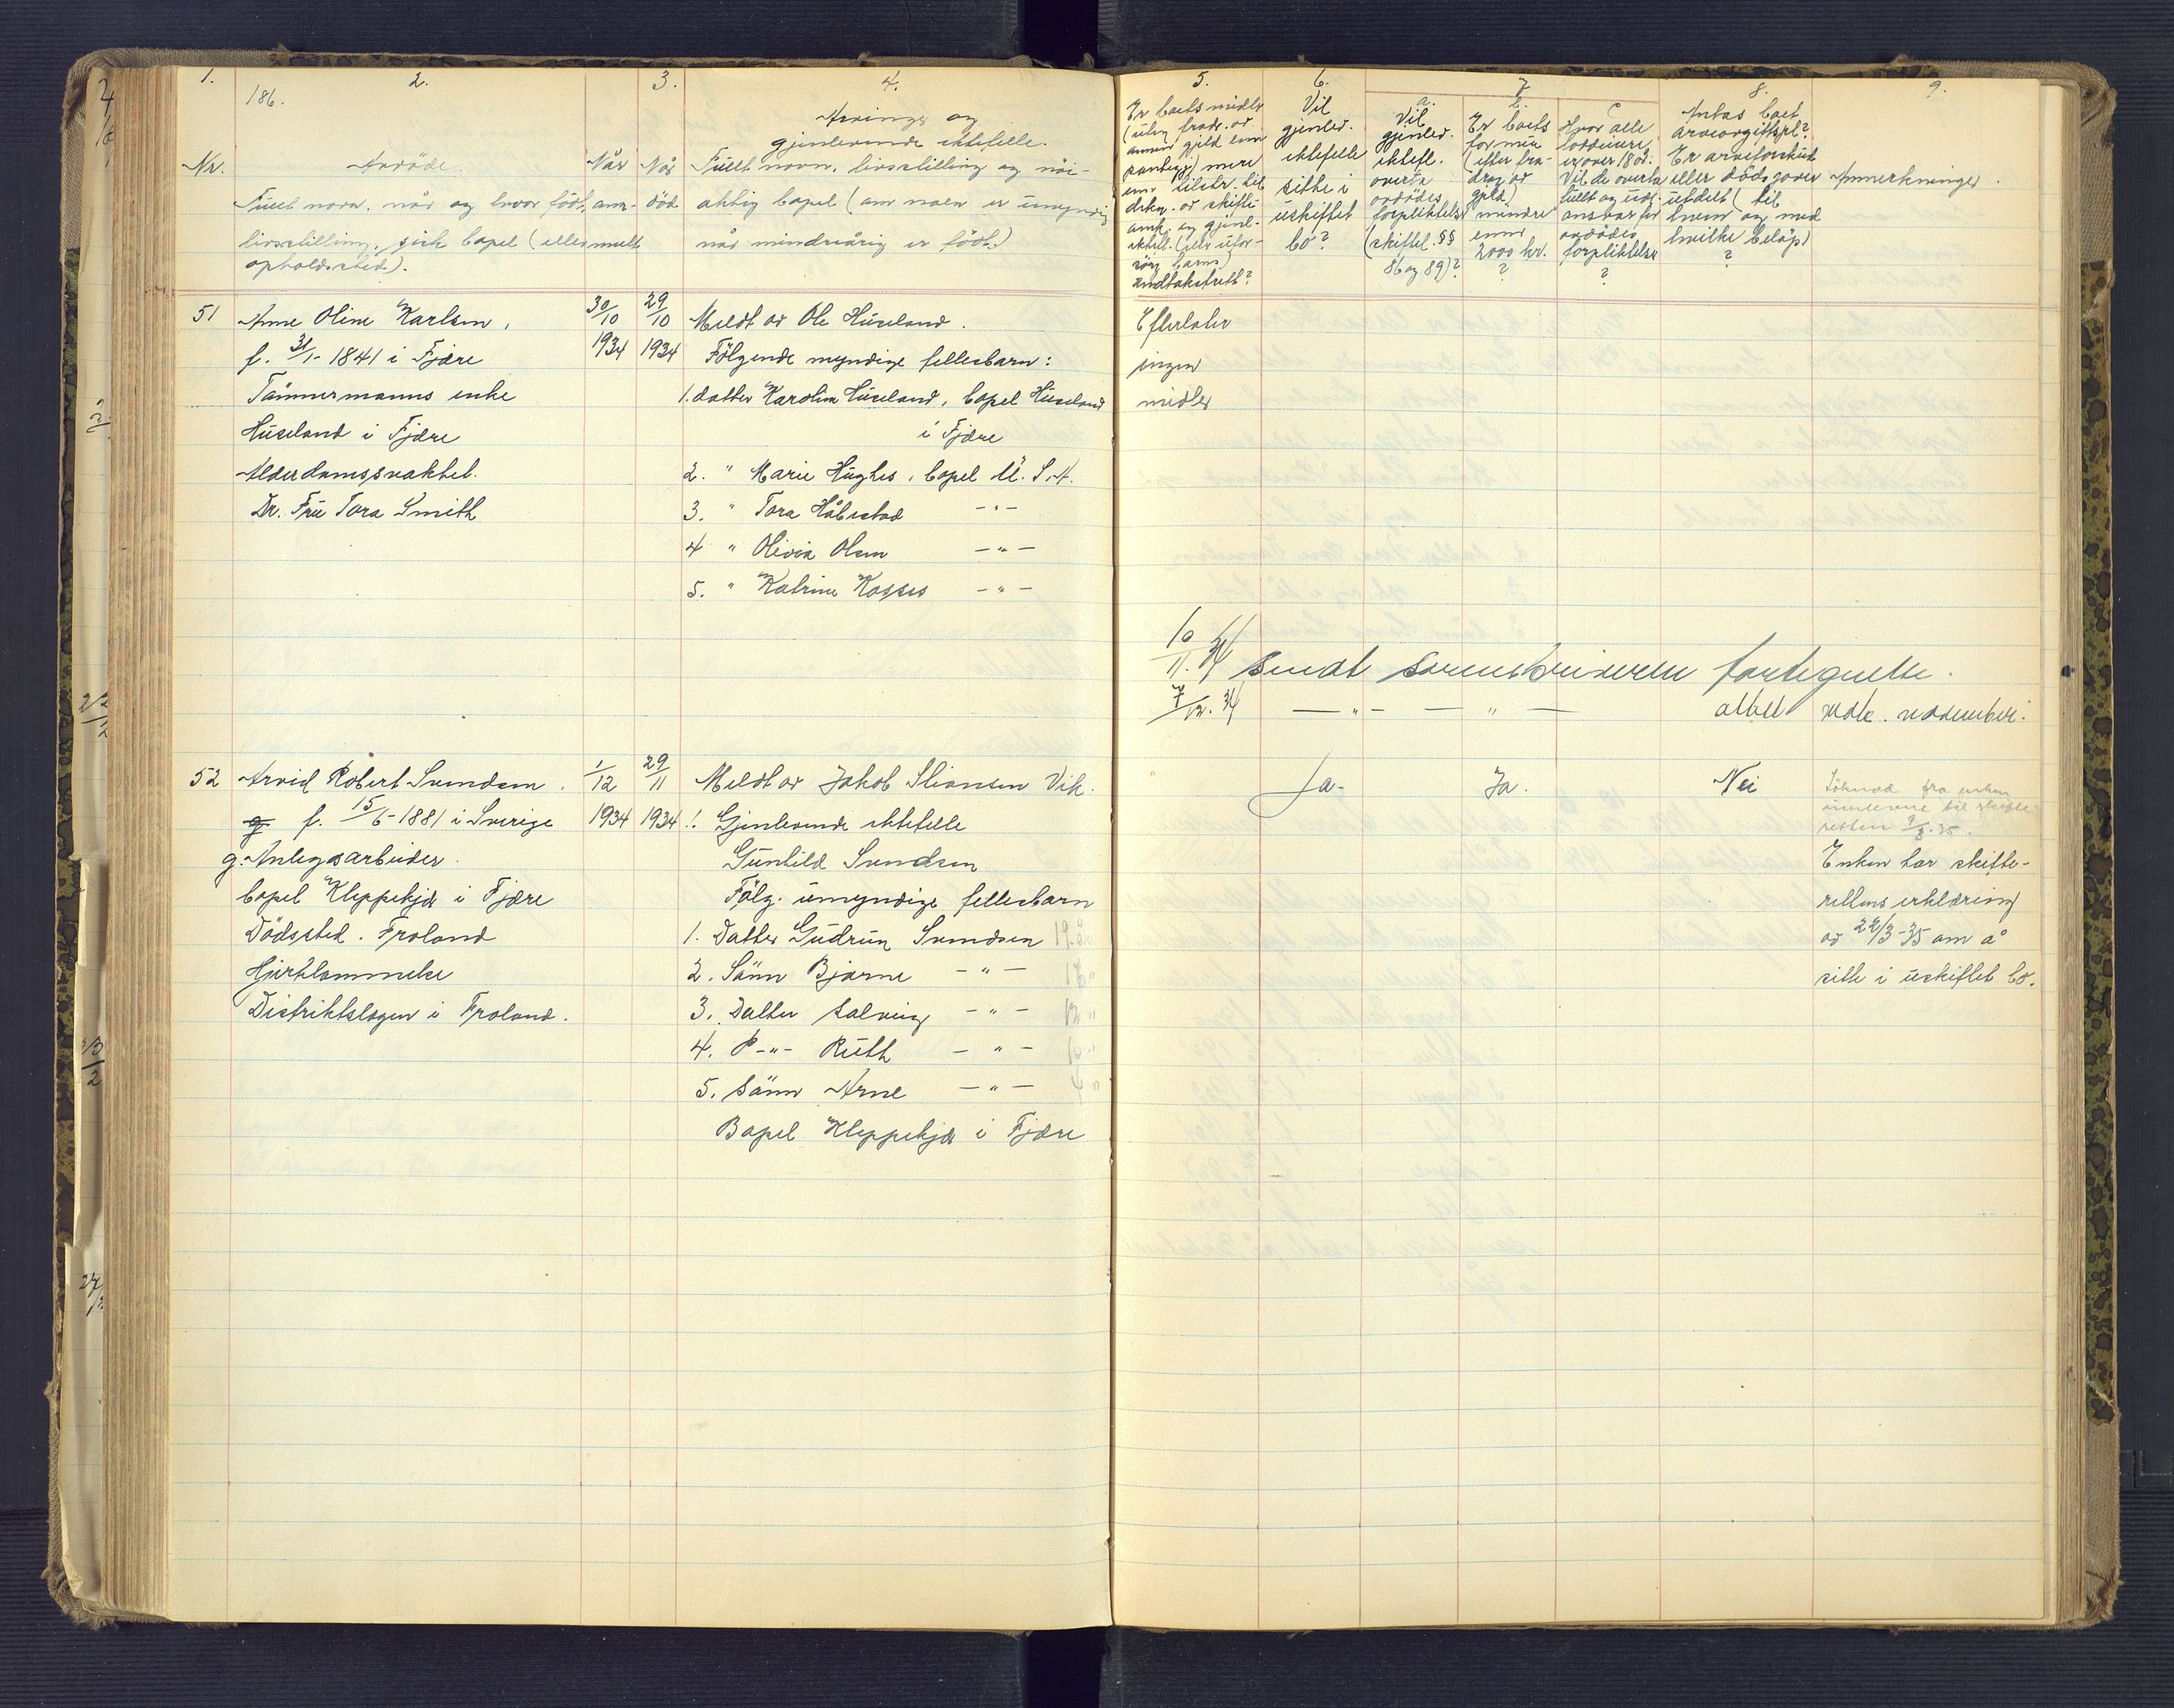 1. 2. 3. 4.
186.
Nr.
Avdöde.
Fullt navn, når og hvor født,
livsstilling, sisste bopel (eller
opholdssted).
Når
an-
meldt
Når
död
Arvinger og
gjenlevende ektefelle.
Fullt navn, livsstilling og nöi-
aktig bopel (om noen er umyndig
når mindreårig er født.)
51
Anne Oline Karlsen,
f. 31/1-1841 i Fjære
Tömmermanns enke
Hüseland i Fjære
Alderdomssvakhet.
Dr. Frü Tora Smith
30/10 1934
29/10 1934
Meldt av Ole Hüseland.
Fölgende myndige fellesbarn:
1. datter Karoline Hüseland, bopel Hüseland
i Fjære
2. " Marie Hüghes, bopel U. S. A.
3. " Tora Håbestad -"-
4 " Olivia Olsen -"-
5. " Katrine Kasses -"-
52
Arvid Robert Svendsen.
g. f. 15/6-1881 i Sverige
g. Anlegsarbeider.
bopel Kleppekjær i Fjære
Dödssted. Froland
Hjertelammelse
Distriktslegen i Froland.
1/12 1934
29/11 1934
Meldt av Jakob Stiansen Vik.
1. Gjenlevende ektefelle
Günhild Svendsen
Fölg. ümyndige fellesbarn
1. Datter Güdrün Svendsen 19 år
2. Sönn Bjarne -"- 17 "
3. Datter Solveig -"- 12 "
4. D-"- Rüth -"- 10 "
5. Sönn Arne -"- 4 "
Bopel Kleppekjær i Fjære
5. 6. 7 8. 9.
Er boets midler
(uten fradr. av
annen gjeld enn
pantegj.) mere
enn tilstr. til
dekn. av skifte-
omk. og gjenl.
ektef. (eller ufor-
sörg. barns)
andtaksrett?
Vil
gjenlev.
ektefelle
sitte i
üskiftet
bo?
a.
Vil
gjenlev.
ektef.
overta
avdödes
forpliktelser
(skiftel. §§
86 og 89)?
b.
Er boets
formue
(efter fra-
drag av
gjeld)
mindre
enn
2000 kr.
?
c
Hvor alle
loddeiere
er over 18 år:
Vil de overta
fullt og udel.
ansvar for
avdödes
forpliktelser
?
Antas boet
arveavgiftspl?
Er arveforskud
eller dödsgaver
utdelt (til
hvem og med
hvilke beløp)
?
Anmerkninger
Efterlater
ingen
midler
10/11.34 Sendt sorenskriveren fortegnelse.
7/12.34 -"- -"- attest vedk. november.
Ja.
Ja.
Nei
Söknad fra enken
til skifte-
retten 9/3.35.
Enken har skifte-
rettens erklæring
av 22/3-35 om å
sitte i üskiftet bo.